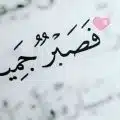 فَصَبْرٌ جَمِيـ